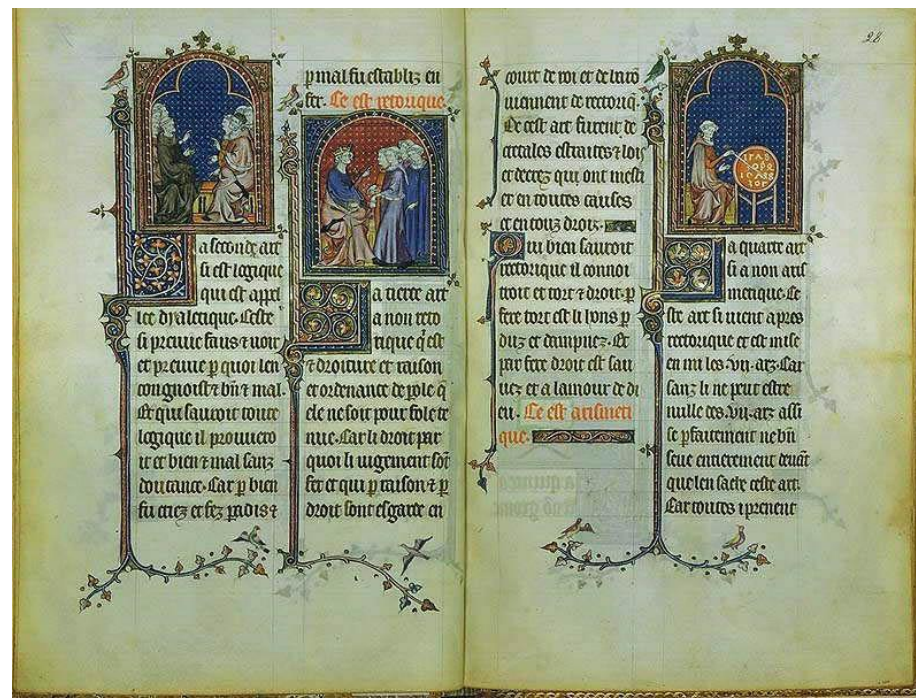 28
a seconde art
si est logique
qui est apel
lee dyaletique. Ceste
si preuve faus ⁊ voir
et preuve p quoi len
congnoist ⁊ bñ ⁊ mal.
Et qui sauroit toute
logique il prouvero
it et bien ⁊ mal sanz
doutance. Car p bien
fu criez et fez padis ⁊
p mal fu establiz en
fer. Ce est retorique.
a tierce art
a non reto
rique q̄ est
⁊ droiture et raison
et ordenance de pole q̄
ele ne soit pour fole te
nue. Car li droit par
quoi li iugement sōt
fet et qui p raison ⁊ p
droit sont esgarde en
court de roi et de
viennent de rectoriq̄.
De cest art furent de
cretales estraites ⁊ lois
et decrez qui ont mest
et en toutes causes
et en touz droiz.
Qui bien sauroit
rectorique il connoi
troit et tort ⁊ droit. p
fere tort est li hons p
duz et dampnez. Et
par fere droit est sau
vez et a lamour de di
eu. Ce est arismeti
que.
a quarte art
si a non aris
metique. Ce
ste art si vient apres
rectorique et est mise
en mi les .vii. arz. Car
sanz li ne peut estre
nulle des .vii. arz assi
se pfaitement ne bñ
seue entierement devāt
que len sache ceste art.
Car toutes i prenent